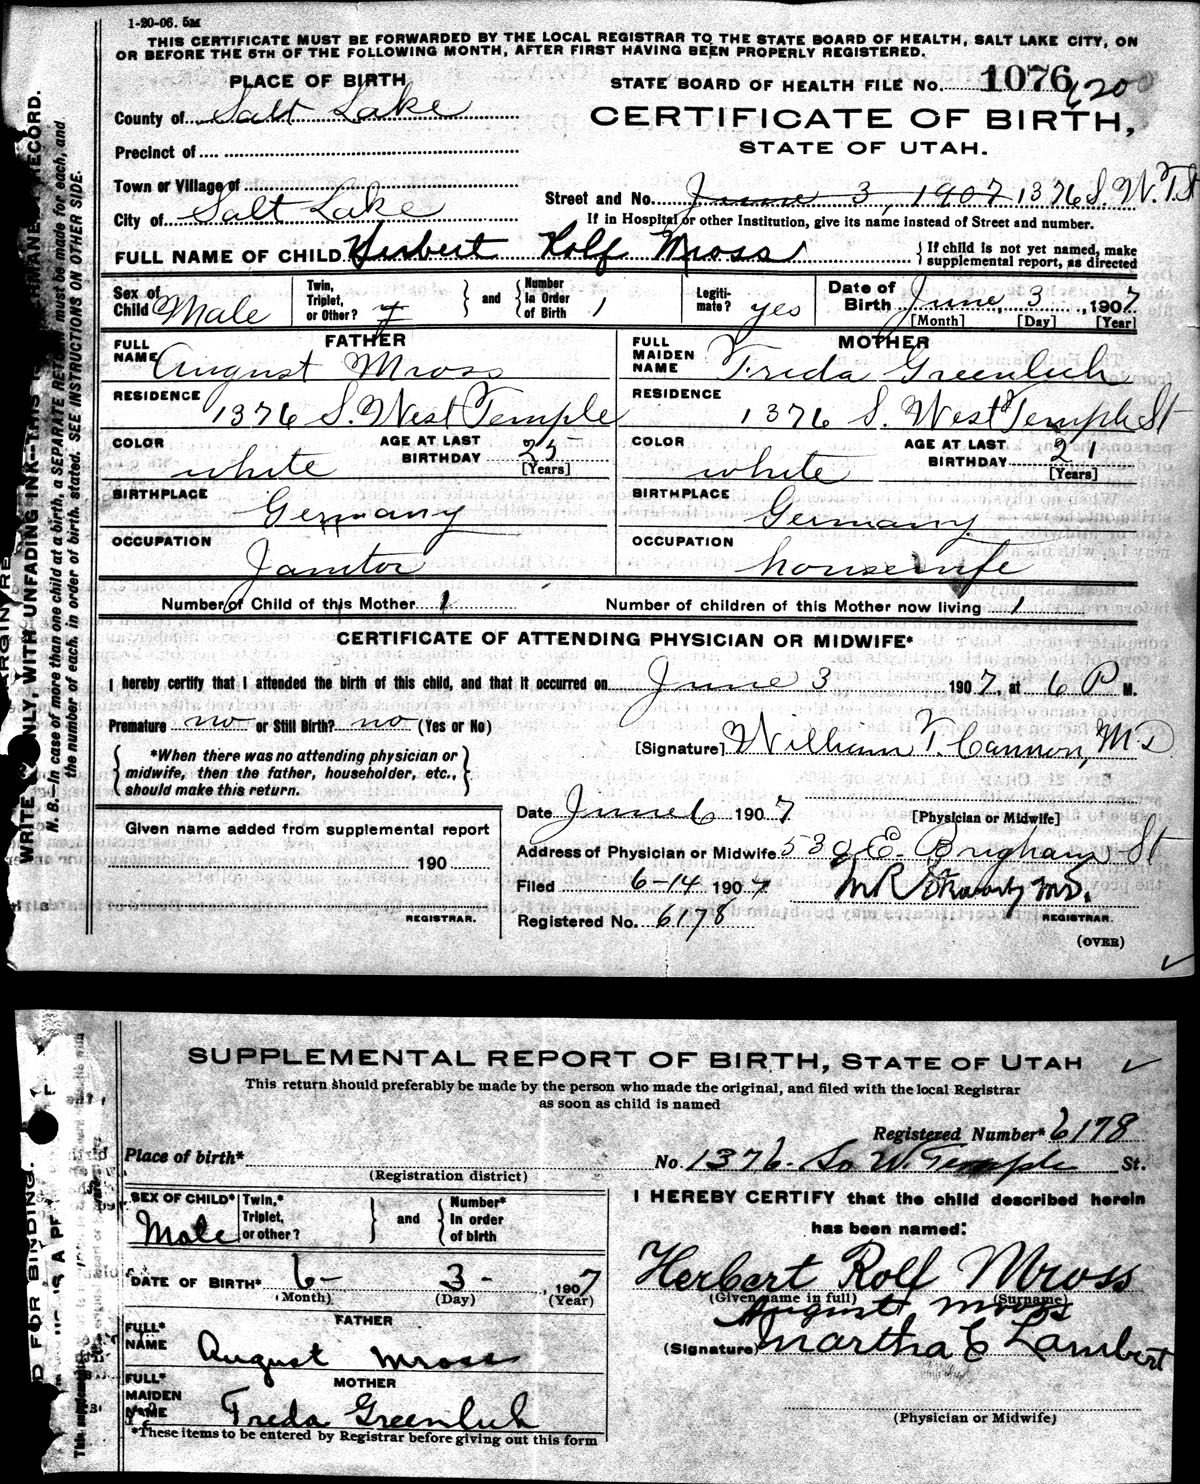 1-20-06. 5M
THIS CERTIFICATE MUST BE FORWARDED BY THE LOCAL REGISTRAR TO THE STATE BOARD OF HEALTH, SALT LAKE CITY, ON
OR BEFORE THE 5TH OF THE FOLLOWING MONTH, AFTER FIRST HAVING BEEN PROPERLY REGISTERED.
PLACE OF BIRTH
STATE BOARD OF HEALTH FILE No. 1076
County of Salt Lake
CERTIFICATE OF BIRTH,
STATE OF UTAH.
Precinct of
Town or Village of
Street and No. June 3, 1907 1376 S. W. T. St
City of Salt Lake
If in Hospital or other Institution, give its name instead of Street and number.
FULL NAME OF CHILD Herbert Rolf Mross
If child is not yet named, make
supplemental report, as directed
Sex of Child Male
Twin, Triplet, or Other?
and
Number in Order of Birth 1
Legitimate? yes
Date of Birth June 3, 1907
[Month] [Day] [Year]
FATHER
FULL NAME August Mross
RESIDENCE 1376 S. West Temple
COLOR white
AGE AT LAST BIRTHDAY 25 [Years]
BIRTHPLACE Germany
OCCUPATION Janitor
MOTHER
FULL MAIDEN NAME Freda Greenlich
RESIDENCE 1376 S. West Temple St
COLOR white
AGE AT LAST BIRTHDAY 21 [Years]
BIRTHPLACE Germany
OCCUPATION housewife
Number of Child of this Mother 1
Number of children of this Mother now living 1
CERTIFICATE OF ATTENDING PHYSICIAN OR MIDWIFE*
I hereby certify that I attended the birth of this child, and that it occurred on June 3 1907, at 6 P M.
Premature no or Still Birth? no (Yes or No)
[Signature] William T. Cannon, MD
*When there was no attending physician or
midwife, then the father, householder, etc.,
should make this return.
Date June 6 1907
[Physician or Midwife]
Given name added from supplemental report
190
REGISTRAR.
Address of Physician or Midwife E. Brigham St
Filed 6-14 1907
Registered No. 6178
REGISTRAR.
(OVER)
N. B.—In case of more than one child at a birth, a SEPARATE RETURN must be made for each, and
the number of each, in order of birth, stated. SEE INSTRUCTIONS ON OTHER SIDE.
SUPPLEMENTAL REPORT OF BIRTH, STATE OF UTAH
This return should preferably be made by the person who made the original, and filed with the local Registrar
as soon as child is named
Registered Number* 6178
Place of birth*
(Registration district)
No. 1376 So W. Temple St.
SEX OF CHILD* Male
Twin,* Triplet, or other?
and
Number* in order of birth
DATE OF BIRTH* 6- 3- , 1907
(Month) (Day) (Year)
FATHER
FULL* NAME August Mross
MOTHER
FULL* MAIDEN NAME Freda Greenlich
*These items to be entered by Registrar before giving out this form
I HEREBY CERTIFY that the child described herein
has been named:
Herbert Rolf Mross
(Given name in full) (Surname)
August Mross
(Signature) Martha E Lambert
(Physician or Midwife)